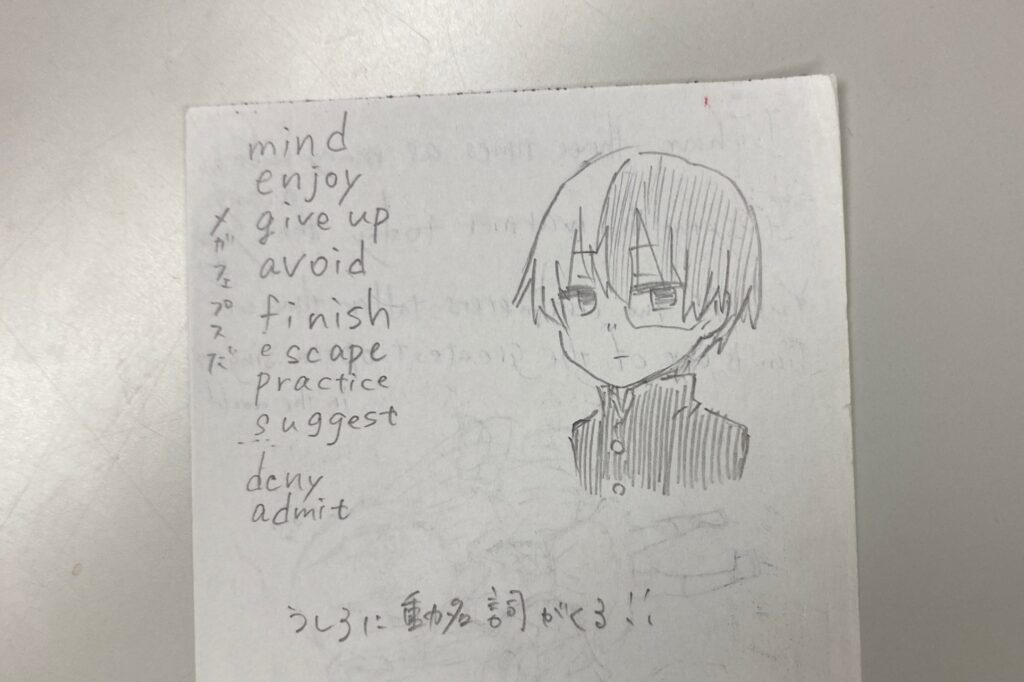 mind
enjoy
give up
avoid
finish
escape
practice
suggest
deny
admit
メガフェプスだ
うしろに動名詞がくる!!